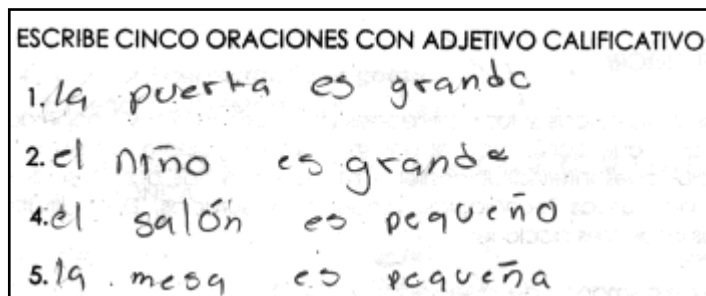 ESCRIBE CINCO ORACIONES CON ADJETIVO CALIFICATIVO
1. la puerta es grande
2. el niño es grande
4. el salón es pequeño
5. la mesa es pequeña